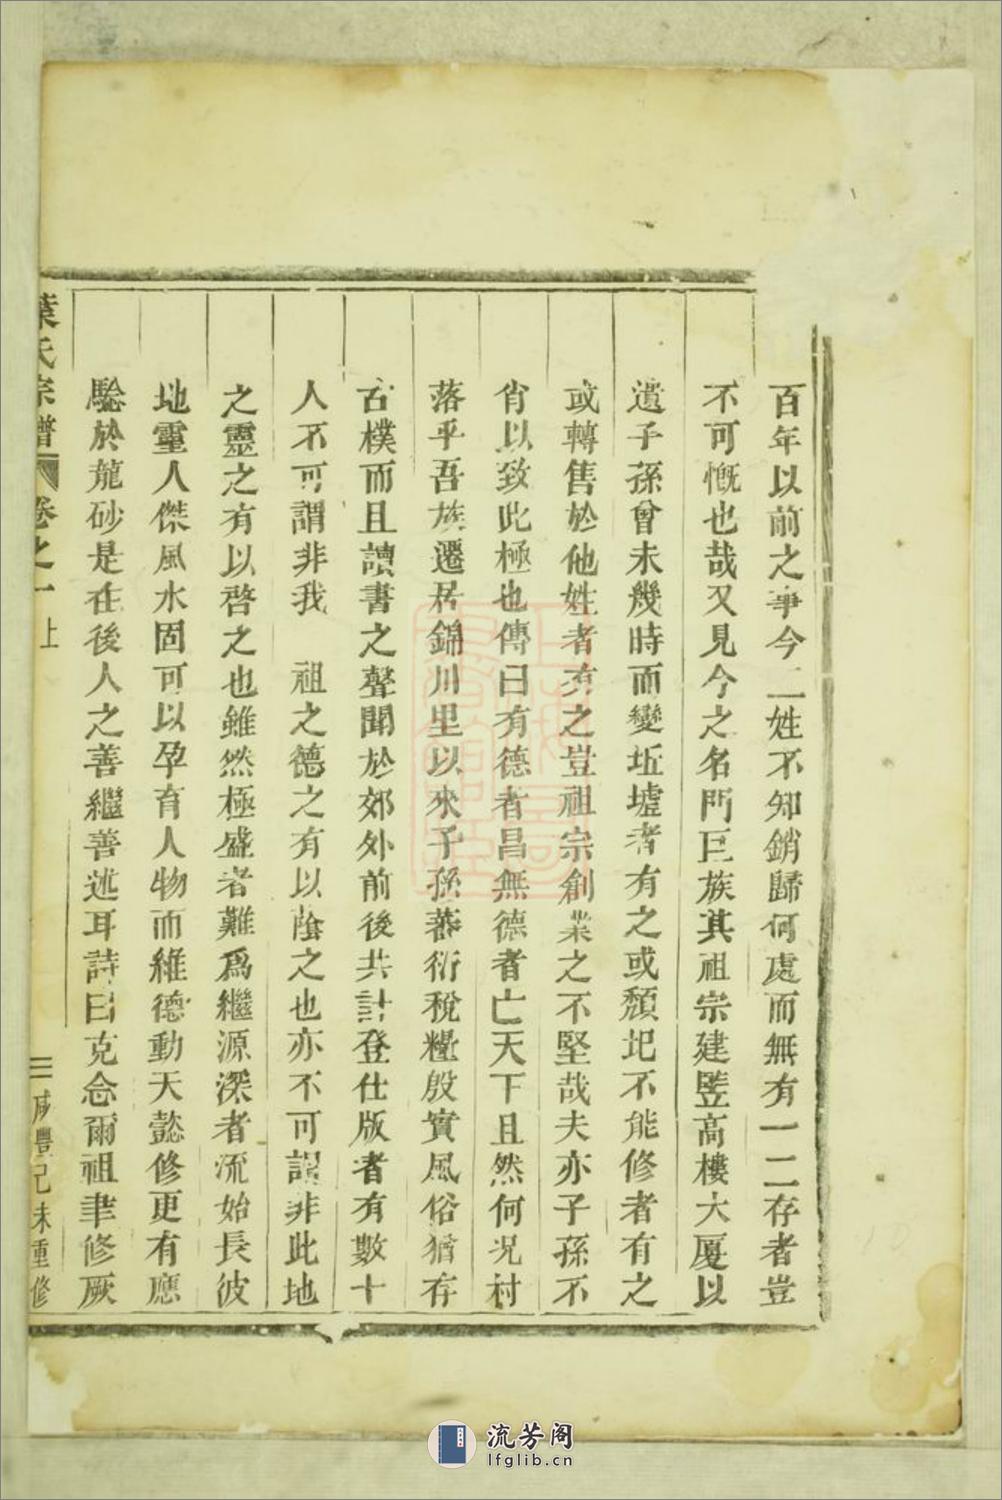 百年以前之事今二姓不知銷歸何處而無有一二存者豈
不可慨也哉又見今之名門巨族其祖宗建豎高樓大厦以
遺子孫曾未幾時而變坵墟者有之或頹圮不能修者有之
或轉售於他姓者有之豈祖宗創業之不堅哉夫亦子孫不
肖以致此極也傳曰有德者昌無德者亡天下且然何况村
落乎吾族遷居錦川里以來子孫蕃衍稅糧殷實風俗猶存
古樸而且讀書之聲聞於郊外前後共計登仕版者有數十
人不可謂非我　祖之德之有以蔭之也亦不可謂非此地
之靈之有以啓之也雖然極盛者難爲繼源深者流始長彼
地靈人傑風水固可以孕育人物而維德動天懿修更有應
驗於龍砂是在後人之善繼善述耳詩曰克念爾祖聿修厥
葉氏宗譜 卷之一 上 三 咸豐己未重修
流芳阁
lfglib.cn